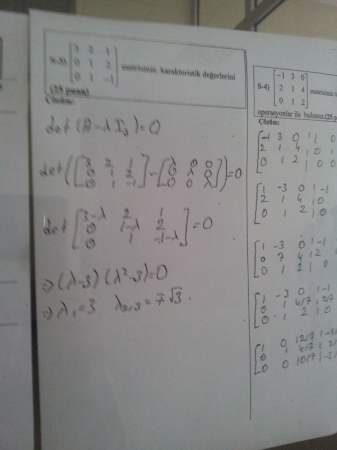 S-3) [3 2 1
0 1 2
0 1 -1] matrisinin karakteristik değerlerini
(25 puan)
Çözüm:
det(A-λI₃)=0
det([3 2 1
0 1 2
0 1 -1]-[λ 0 0
0 λ 0
0 0 λ])=0
det[3-λ 2 1
0 1-λ 2
0 1 -1-λ]=0
⇒(λ-3)(λ²-3)=0
⇒λ₁=3 λ₂,₃=∓√3.
S-4) [-1 3 0
2 1 4
0 1 2] matrisinin
operasyonlar ile bulunuz.(25
Çözüm:
[-1 3 0 | 1 0
2 1 4 | 0 1
0 1 2 | 0 0
[1 -3 0 | -1
2 1 4 | 0
0 1 2 | 0
[1 -3 0 | -1
0 7 4 | 2
0 1 2 | 0
[1 -3 0 | -1
0 1 4/7 | 2/7
0 1 2 | 0
[1 0 12/7 |
0 1 4/7 |
0 0 10/7 |